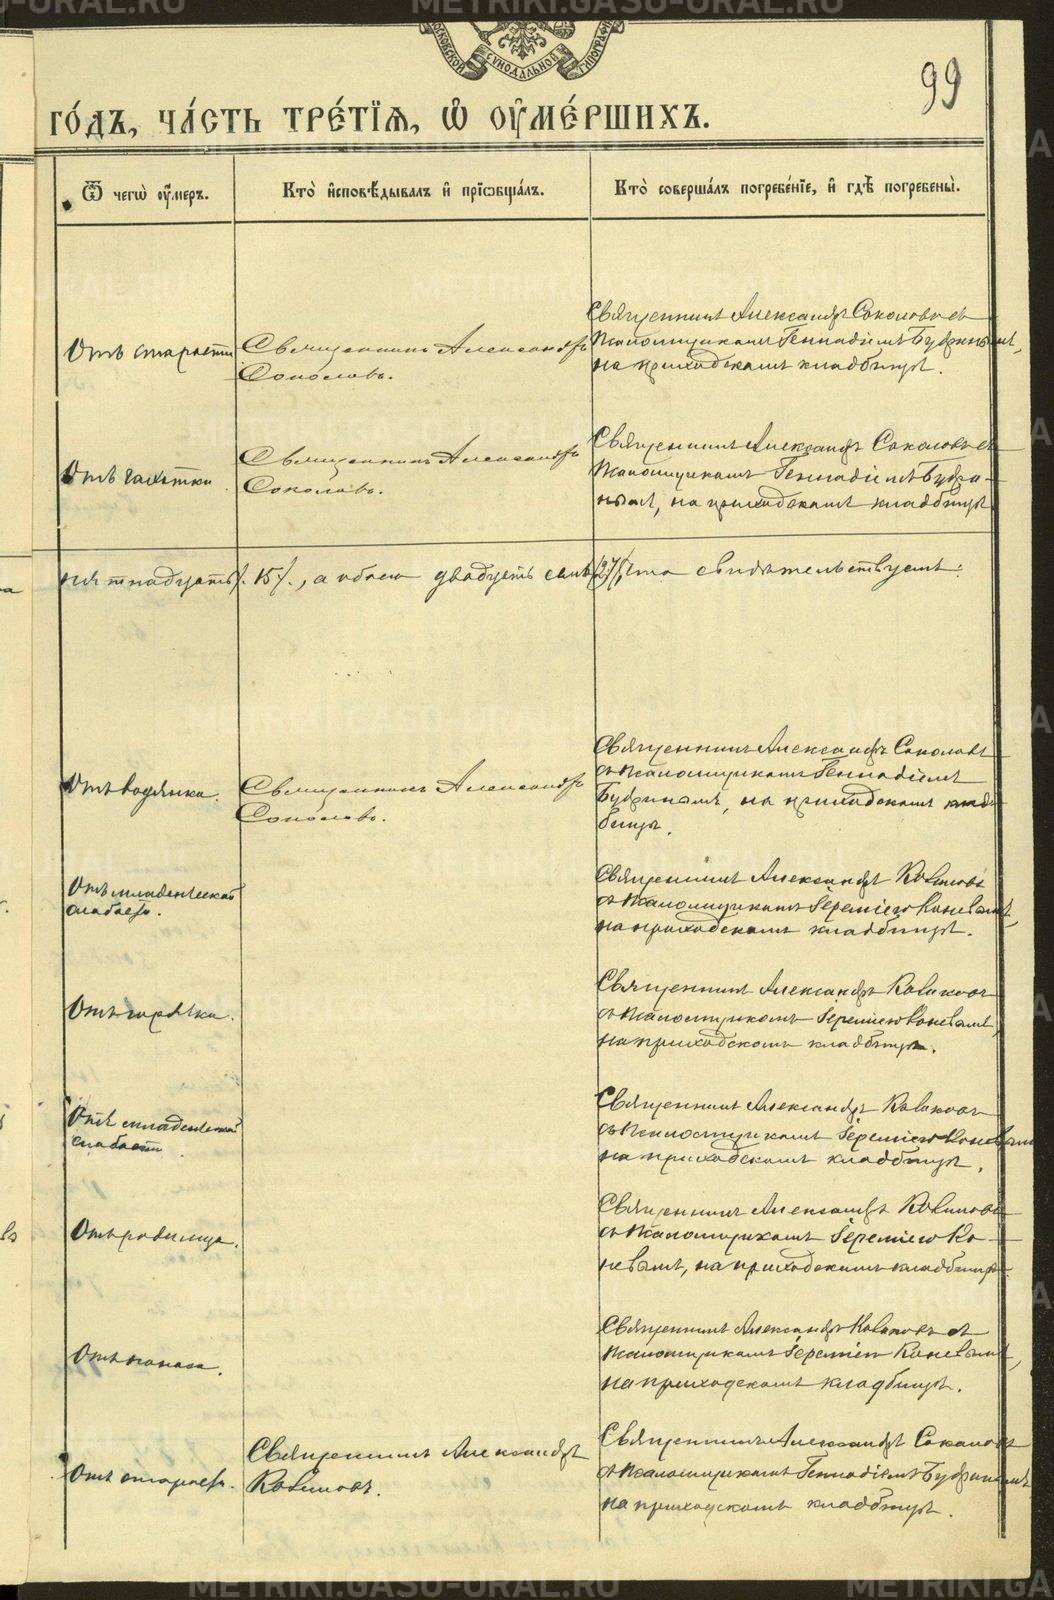 МОСКОВСКОЙ СѴНОДАЛЬНОЙ ТИПОГРАФІИ
99
ГО́ДЪ, ЧА́СТЬ ТРЕ́ТІѦ, Ѡ҆ ОУ҆МЕ́РШИХЪ.
Ѿ чегѡ̀ оу҆́меръ.
Кто̀ и҆сповѣ́дывалъ и҆ прїѡбща́лъ.
Кто̀ соверша́лъ погребе́нїе, и҆ гдѣ̀ погребены̀.
Отъ старости
Священникъ Александръ
Соколовъ.
Священникъ Александръ Соколовъ съ
псаломщикомъ Геннадіемъ
на приходскомъ кладбищѣ.
Отъ чахотки
Священникъ Александръ
Соколовъ.
Священникъ Александръ Соколовъ съ
псаломщикомъ Геннадіемъ
на приходскомъ кладбищѣ
15/., а обоего двадцать семь /27/, что свидѣтельствуемъ:
Отъ водянки.
Священникъ Александръ
Соколовъ.
Священникъ Александръ Соколовъ
съ псаломщикомъ Геннадіемъ
на приходскомъ клад-
бищѣ.
Отъ младенческой
слабости.
Священникъ Александръ
съ псаломщикомъ Іереміею Коневымъ,
на приходскомъ кладбищѣ.
Отъ горячки.
Священникъ Александръ
съ псаломщикомъ Іереміею Коневымъ,
на приходскомъ кладбищѣ.
Отъ младенческой
слабости
Священникъ Александръ
съ псаломщикомъ Іереміею Коневымъ
на приходскомъ кладбищѣ.
Отъ родимца.
Священникъ Александръ
съ псаломщикомъ Іереміею Ко-
невымъ, на приходскомъ кладбищѣ.
Отъ поноса.
Священникъ Александръ съ
псаломщикомъ Іереміею Коневымъ,
на приходскомъ кладбищѣ.
Отъ старости.
Священникъ Александръ
Священникъ Александръ Соколовъ
съ псаломщикомъ Геннадіемъ
на приходскомъ кладбищѣ.
METRIKI.GASO-URAL.RU